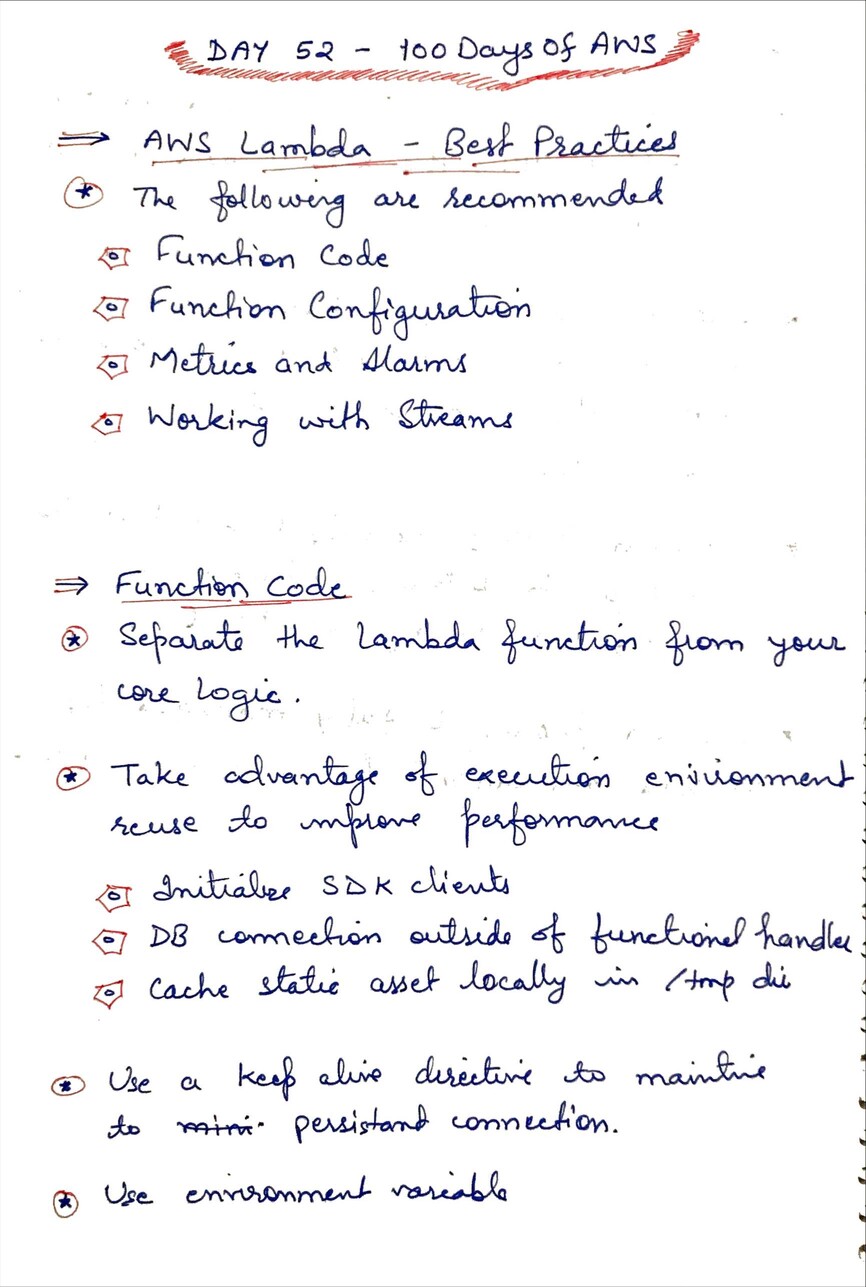 DAY 52 - 100 Days of AWS
⇒ AWS Lambda - Best Practices
* The following are recommended
Function Code
Function Configuration
Metrics and Alarms
Working with Streams
⇒ Function Code
* Separate the Lambda function from your
core logic.
* Take advantage of execution environment
reuse to improve performance
Initialize SDK clients
DB connection outside of functional handler
Cache static asset locally in /tmp dir
* Use a keep alive directive to
to persistand connection.
* Use environment variable